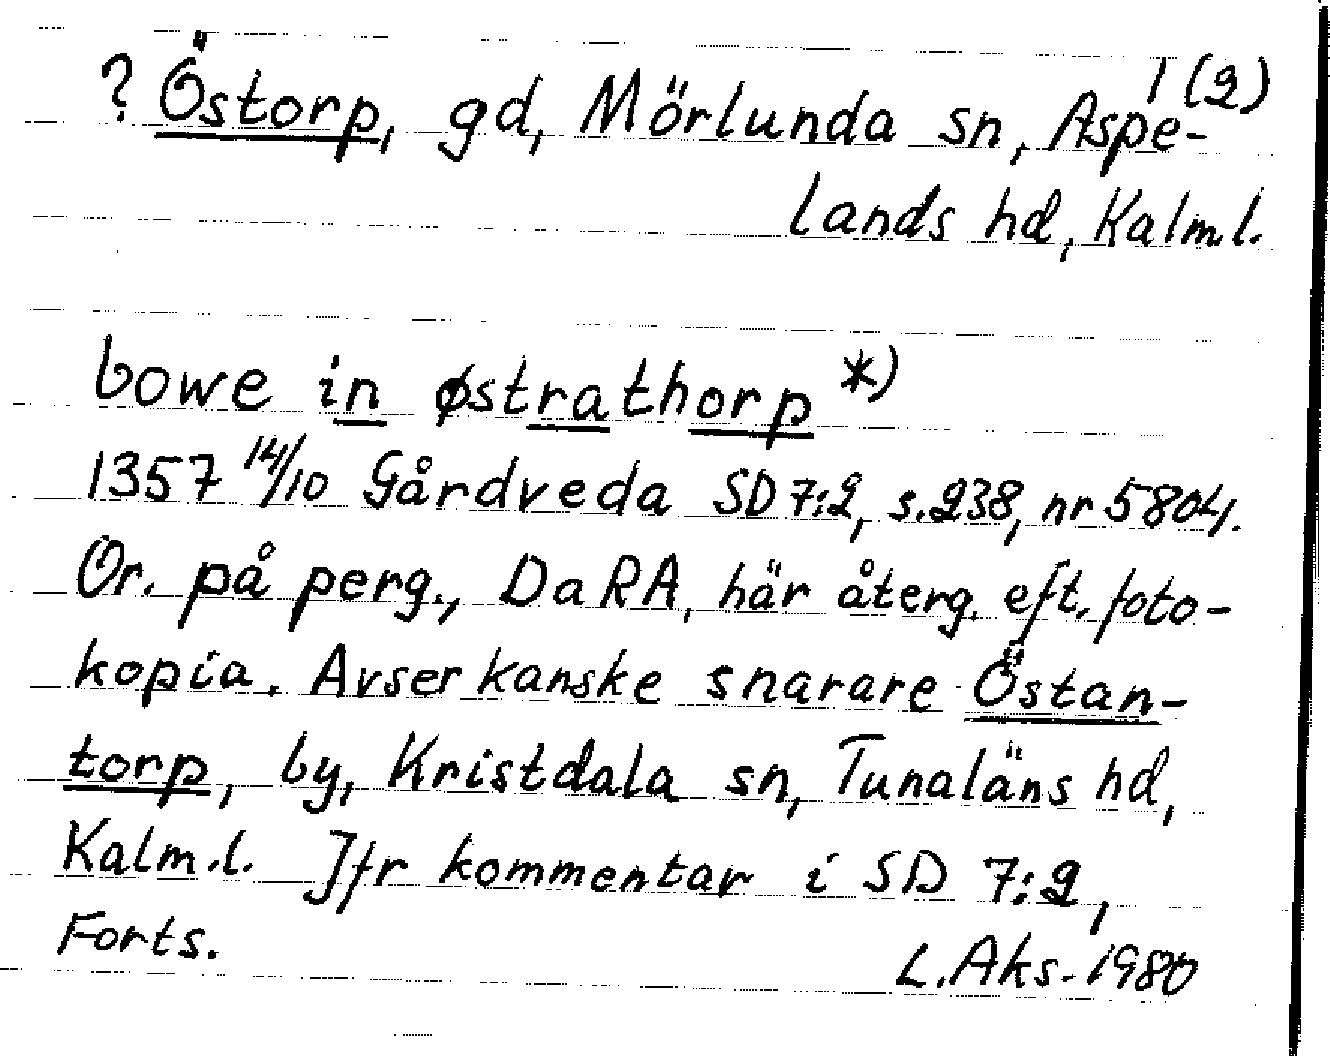 1(2)
? Östorp, gd, Mörlunda sn, Aspe-
lands hd, Kalm.l.
bowe in østrathorp *)
1357 14/10 Gårdveda SD 7:2, s.238, nr 5804.
Or. på perg., DaRA, här återg. eft. foto-
kopia. Avser kanske snarare Östan-
torp, by, Kristdala sn, Tunaläns hd,
Kalm.l. Jfr kommentar i SD 7:2,
Forts.
L.Aks. 1980